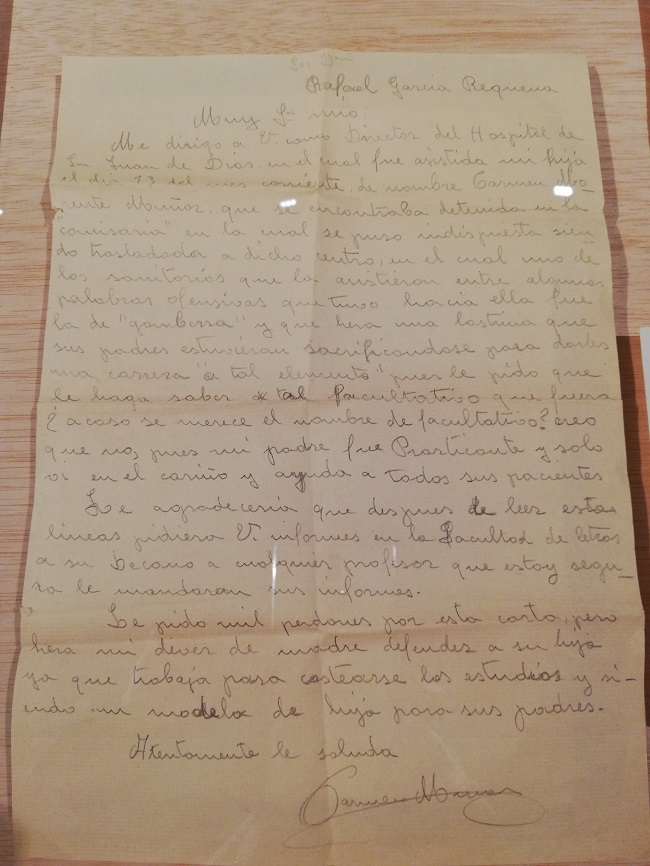 Sr. Don
Rafael Garcia Requena
Muy Sr mio:
Me dirigo a V. como Director del Hospital de
San Juan de Dios en el cual fue asistida mi hija
el dia 13 del mes corriente, de nombre Carmen Mo-
rente Muñoz, que se encontraba detenida en la
comisaria" en la cual se puso indispuesta sien
do trasladada a dicho centro, en el cual uno de
los sanitarios que la asistieron entre algunas
palabras ofensivas que tuvo hacia ella fue
la de "gamberra" y que hera una lastima que
sus padres estuvieran sacrificandose para darles
una carrera "a tal elemento" pues le pido que
le haga saber a tal facultativo que fuera
¿acaso se merece el nombre de facultativo? creo
que no, pues mi padre fue Practicante y solo
vi en el cariño y ayuda a todos sus pacientes
Le agradeceria que despues de leer estas
lineas pidiera V. informes en la Facultad de letras
a su Decano a cualquier profesor que estoy segu-
ra le mandaran sus informes.
Le pido mil perdones por esta carta, pero
hera mi dever de madre defender a su hija
ya que trabaja para costearse los estudios y si-
endo un modelo de hija para sus padres.
Atentamente le saluda
Carmen Muñoz